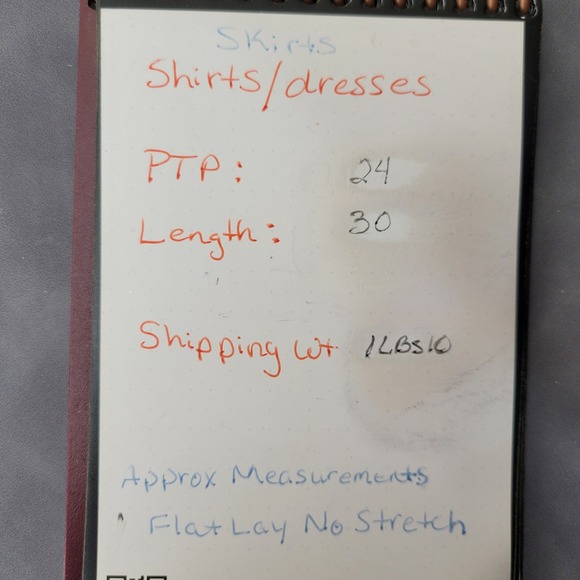 Skirts
Shirts/dresses
PTP: 24
Length: 30
Shipping Wt 1LBS10
Approx Measurements
Flat Lay No Stretch